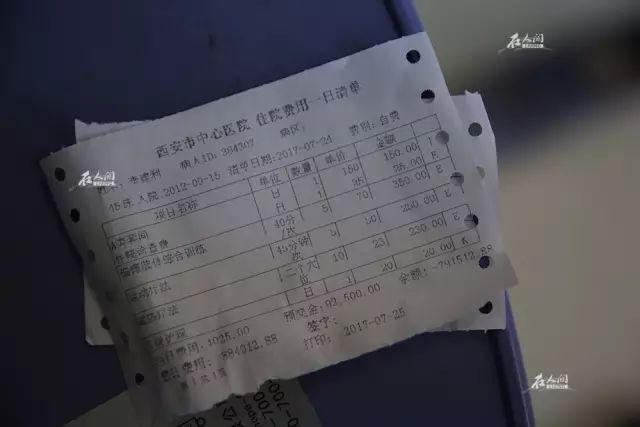 在人间
在人间
在人间
西安市中心医院 住院费用一日清单
病人ID: 394307 病区:
李建利 清单日期:2017-07-24 费别: 自费
45床 入院:2012-09-16
项目名称 单位 数量 单价 金额
A类套间 日 1 150 150.00 I
住院诊查费 日 35 35.00 E
偏瘫肢体综合训练 40分/次 5 70 350.00 E
运动疗法 45分钟/次 50 250.00 E
疗法 10 23 230.00 E
护理 日 1 20 20.00 K
当日费用: 1025.00 预交金: 92,500.00 余额: -791512.88
累计费用: 884012.88 签字:
第1页 打印: 2017-07-25